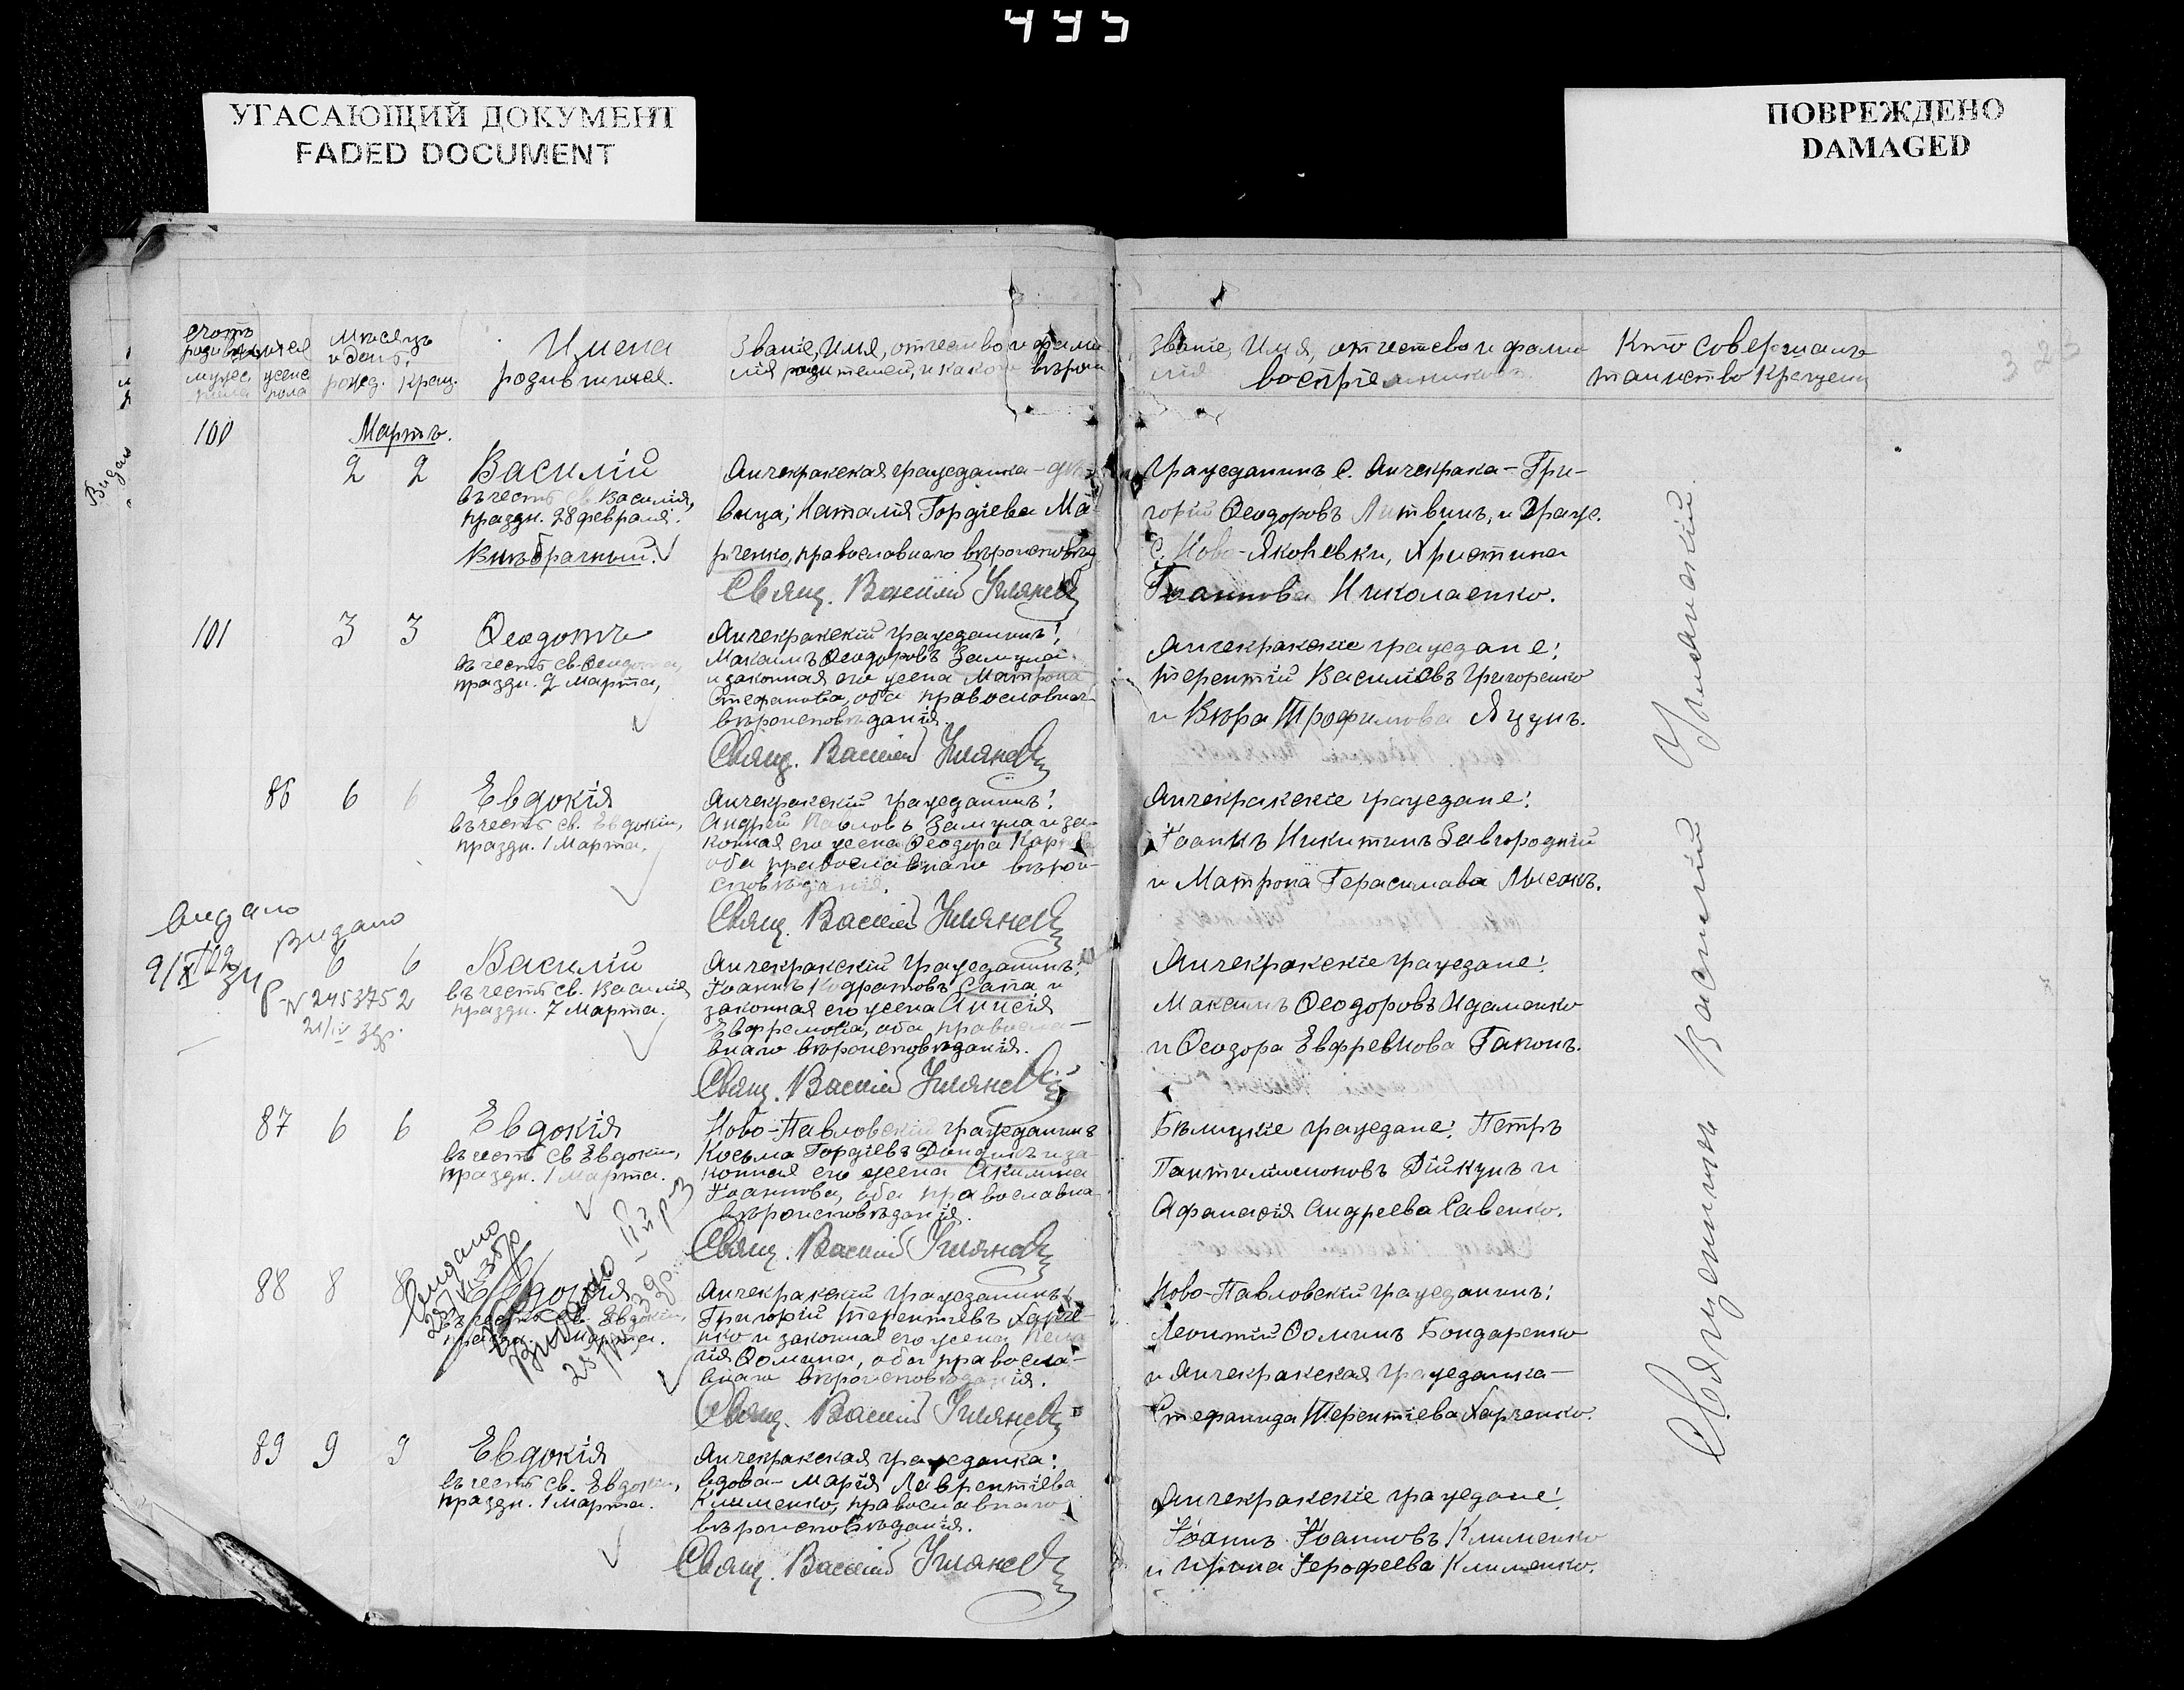 445
УГАСАЮЩИЙ ДОКУМЕНТ
FADED DOCUMENT
ПОВРЕЖДЕНО
DAMAGED
Мѣсяцъ
и день
рожд. крещ.
Имена
родившихся.
Званіе, Имя, отчество и фами-
лія родителей, и какой вѣроисп.
Званіе, Имя, отчество и фами-
лія воспріемниковъ
Кто совершалъ
таинство крещенія
32
100
Мартъ.
2 2 Василій
въ честь св. Василія,
праздн. 28 февраля.
Внѣбрачный.
Анчекракская гражданка - дѣ-
вица; Наталія Гордіева Ма-
рченко, православнаго вѣроисповѣд.
Свящ. Василій Улянскій
Гражданинъ с. Анчекрака - Гри-
горій Ѳеодоровъ Литвинъ, и гражд.
с. Ново-Яковлевки, Христина
Іоаннова Николаенко.
101 3 3 Ѳеодотъ
въ честь св. Ѳеодота,
праздн. 2 Марта,
Анчекракскій гражданинъ:
Максимъ Ѳеодоровъ Замула
и законная его жена Матрона
Стефанова, оба православнаго
вѣроисповѣданія.
Свящ. Василій Улянскій
Анчекракскіе граждане:
Терентій Василіевъ Григоренко
и Вѣра Трофимова Яцунъ.
86 6 6 Евдокія
въ честь св. Евдокіи,
праздн. 1 Марта.
Анчекракскій гражданинъ:
Андрей Павловъ Замула и за-
конная его жена Ѳеодора Карпова
оба православнаго вѣрои-
сповѣданія.
Свящ. Василій Улянскій
Анчекракскіе граждане:
Іоаннъ Никитинъ Завгородній
и Матрона Герасимова Лисакъ.
Видано
Видано
N 2453752
21/IV 39р.
6 6 Василій
въ честь св. Василія
праздн. 7 Марта.
Анчекракскій гражданинъ:
Іоаннъ Кодратовъ Сапа и
законная его жена Анисія
Евфремова, оба правосла-
внаго вѣроисповѣданія.
Свящ. Василій Улянскій
Анчекракскіе граждане:
Максимъ Ѳеодоровъ Адаменко
и Ѳеодора Евфремова Гапонъ.
87 6 6 Евдокія
въ честь св. Евдокіи,
праздн. 1 Марта.
Ново-Павловскій гражданинъ
Косьма Гордіевъ Дондикъ и за-
конная его жена Акилина
Іоаннова, оба православна
вѣроисповѣданія.
Свящ. Василій Улянскій
Бѣлицкіе граждане: Петръ
Пантилимоновъ Дійкунъ и
Афанасія Андреева Савенко.
Видано
Видано
88 8 8 Евдокія
въ честь св. Евдокіи,
праздн. 1 Марта.
Анчекракскій гражданинъ:
Григорій Терентіевъ Харче-
нко и законная его жена Пела-
гія Ѳомина, оба правосла-
внаго вѣроисповѣданія.
Свящ. Василій Улянскій
Ново-Павловскій гражданинъ:
Леонтій Ѳоминъ Бондаренко
и Анчекракская гражданка -
Стефанида Терентіева Харченко.
89 9 9 Евдокія
въ честь св. Евдокіи,
праздн. 1 Марта.
Анчекракская гражданка:
вдова - Марія Лаврентіева
Клименко, православнаго
вѣроисповѣданія.
Свящ. Василій Улянскій
Анчекракскіе граждане:
Іоаннъ Іоанновъ Клименко
и Ирина Іерофеева Клименко.
Священникъ Василій Улянскій.